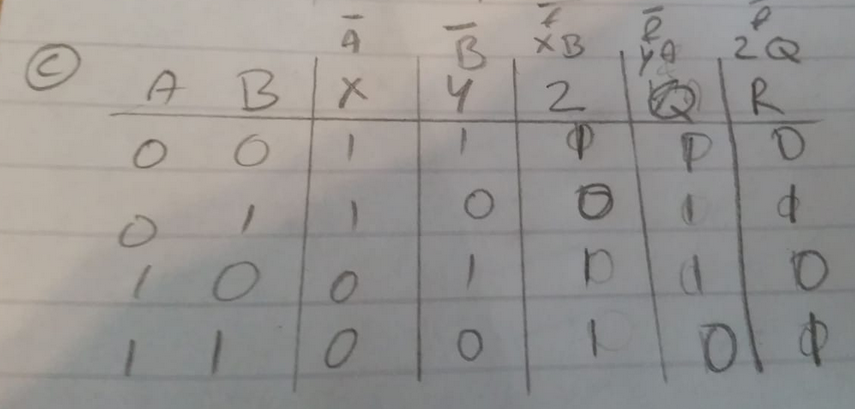 Ā B̄ XB YA ZQ
C A B X Y Z Q R
0 0 1 1 0
0 1 1 0 0 1 1
1 0 0 1 1 1 0
1 1 0 0 1 0